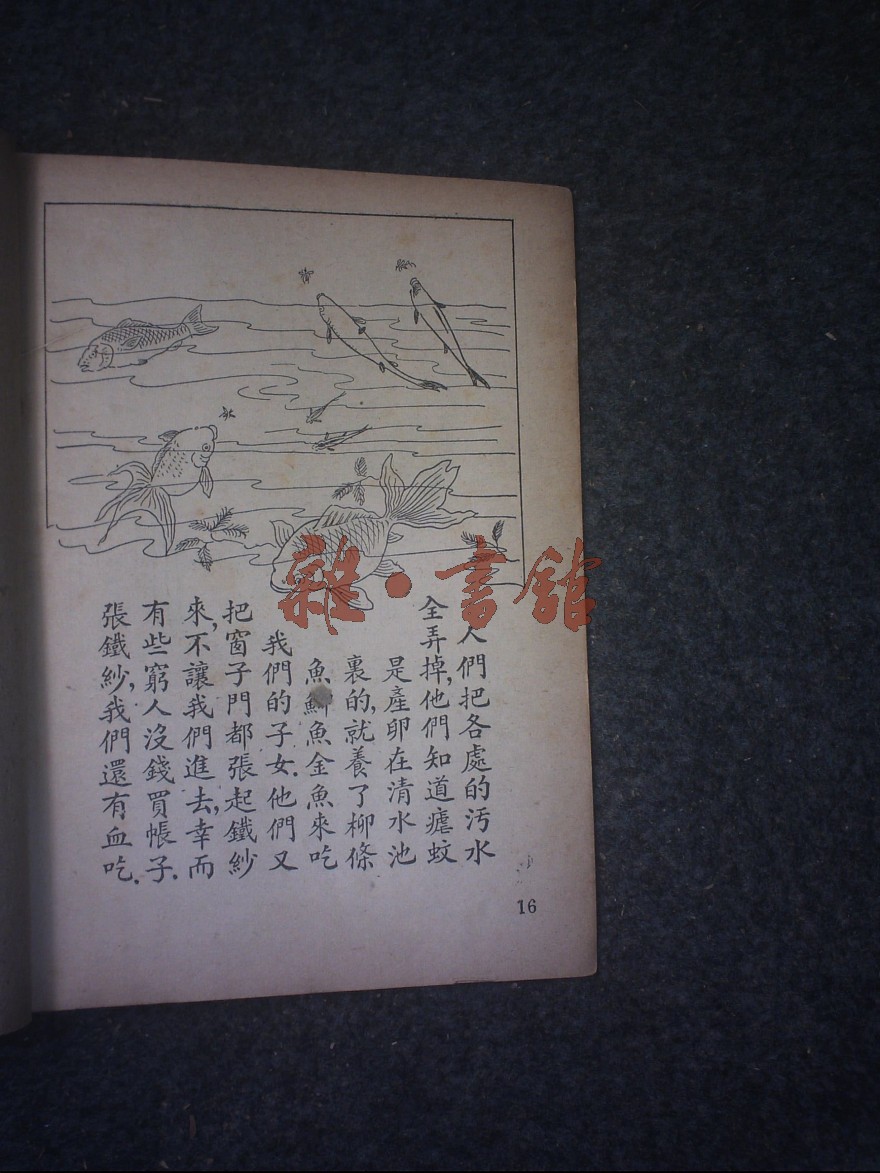 雜·書館
人們把各處的污水
全弄掉,他們知道瘧蚊
是產卵在清水池
裏的,就養了柳條
魚魚金魚來吃
我們的子女.他們又
把窗子門都張起鐵紗
來,不讓我們進去,幸而
有些窮人沒錢買帳子.
張鐵紗,我們還有血吃.
16